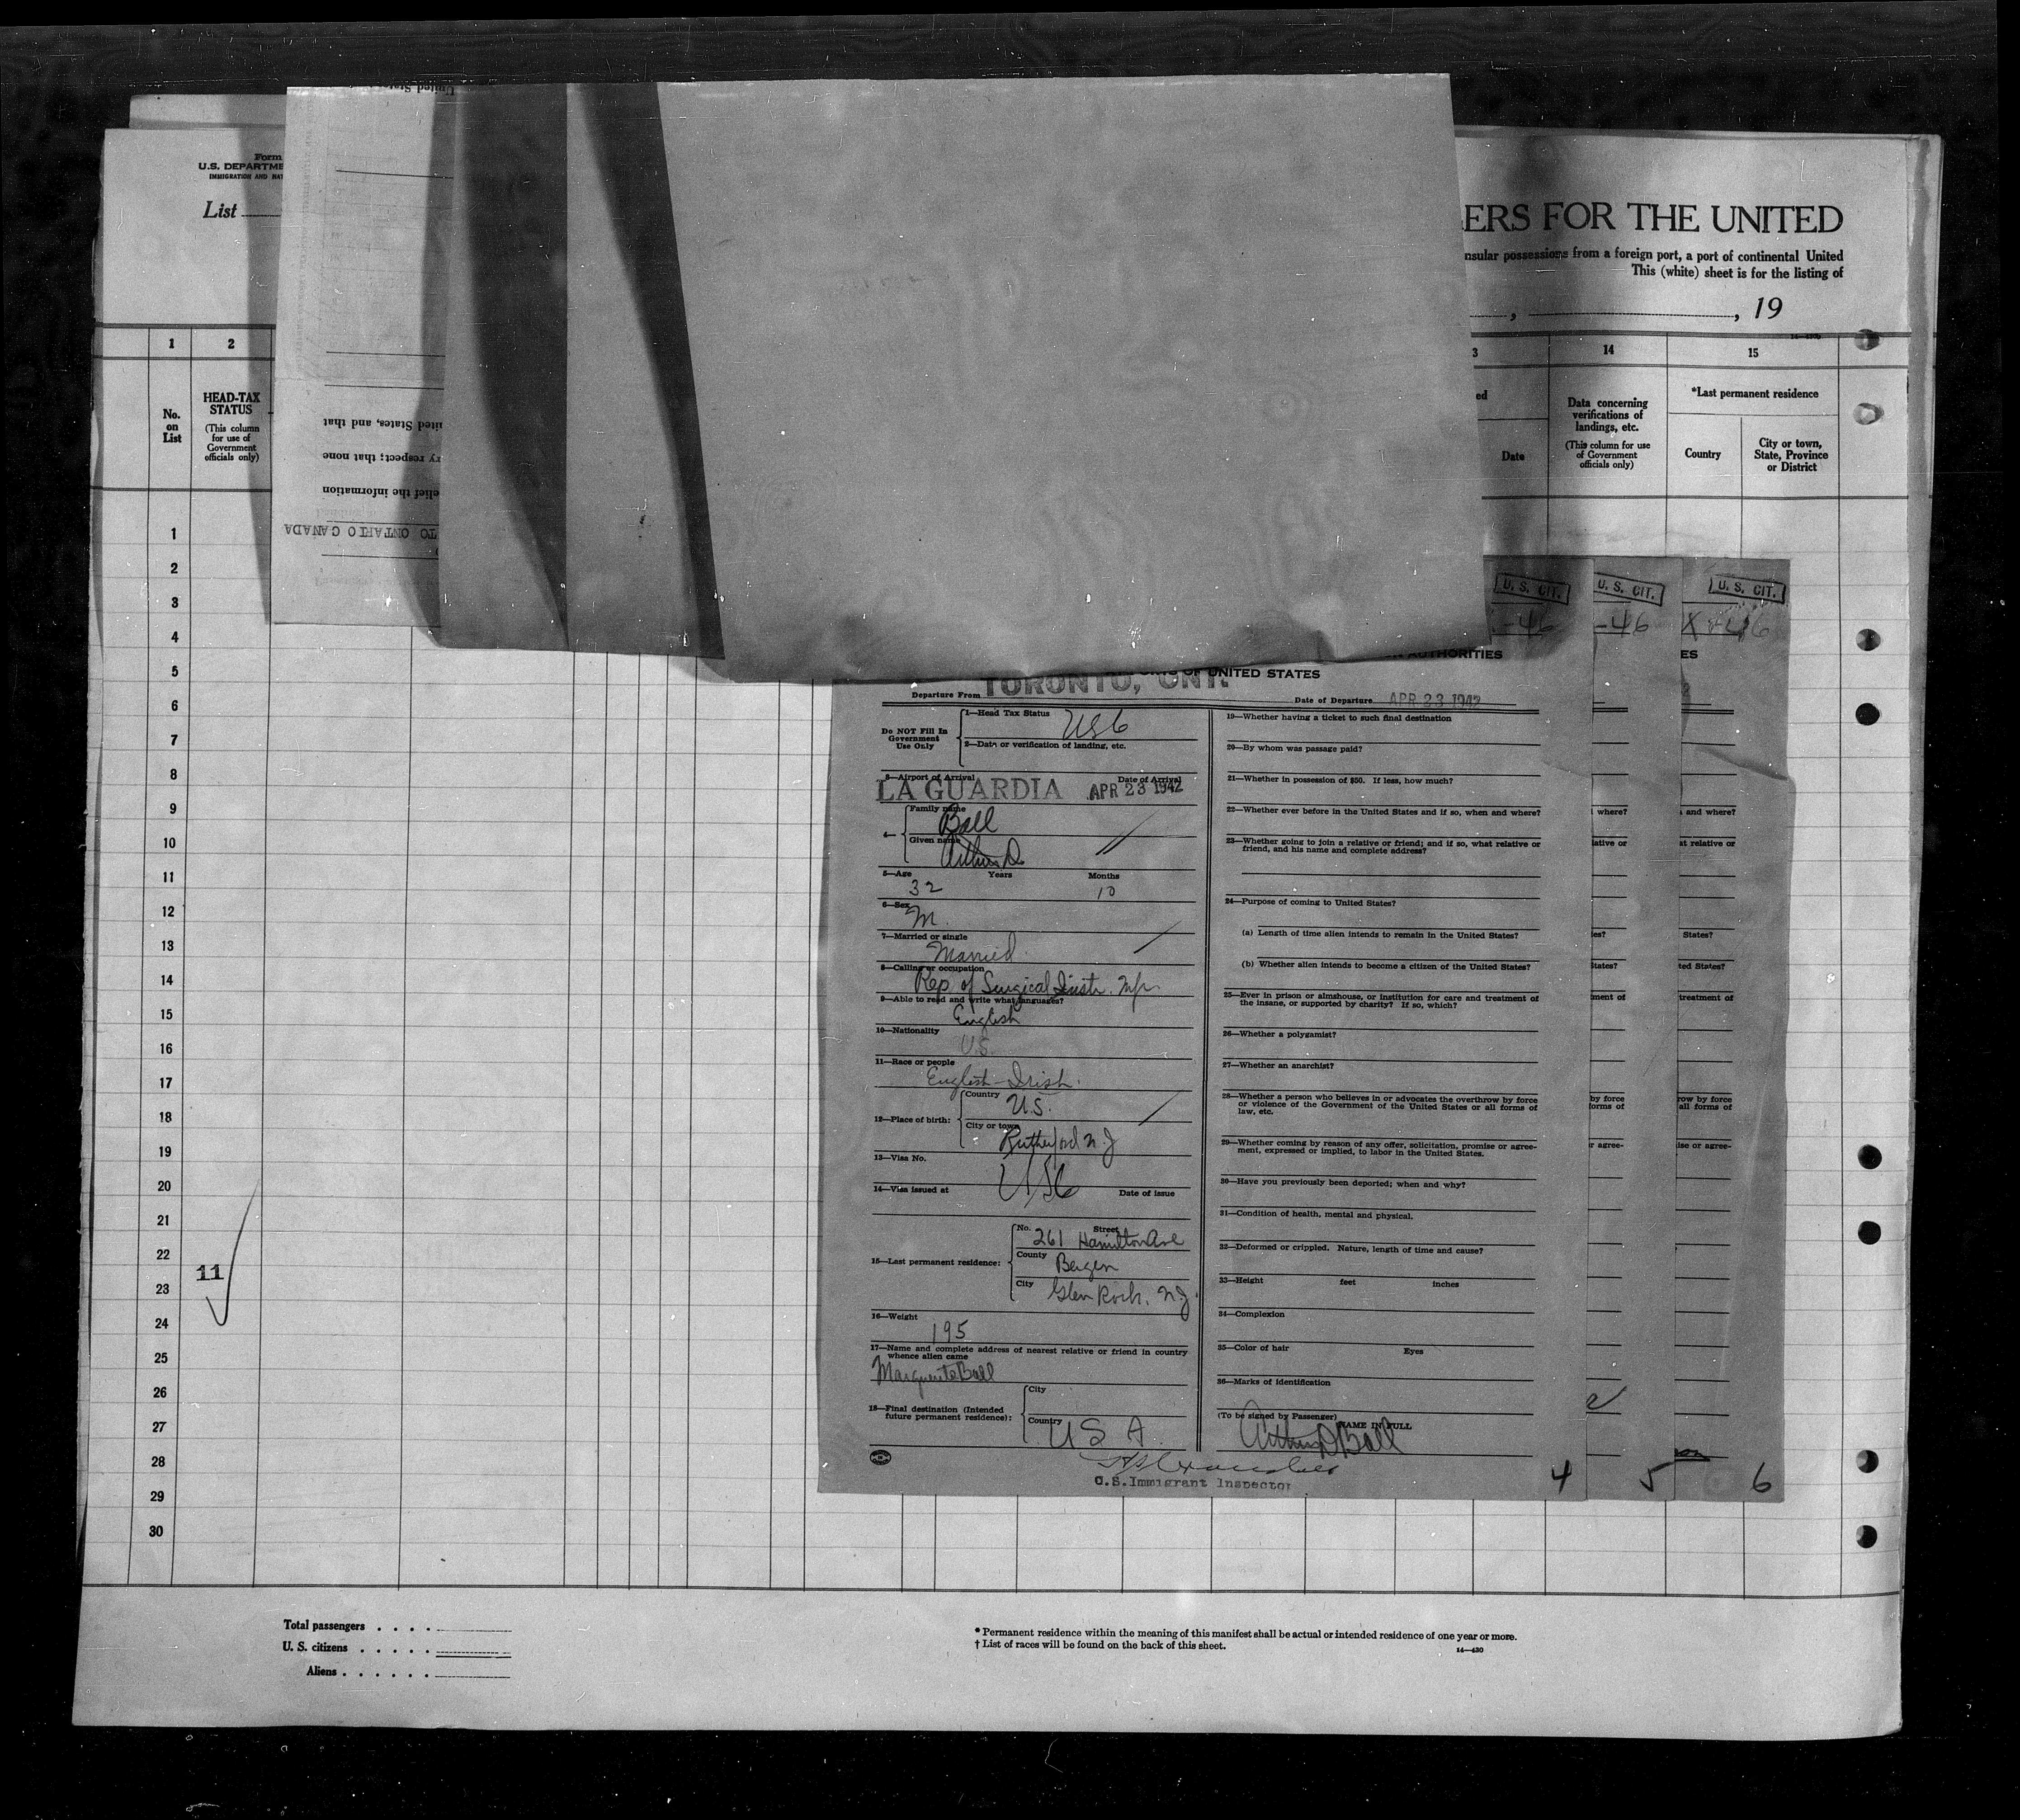 Form
U.S. DEPARTME
IMMIGRATION AND NAT
List
United States
uited States, and that
ry respect; that none
elief the information
TO ONTARIO CANADA
ERS FOR THE UNITED
nsular possessions from a foreign port, a port of continental United
This (white) sheet is for the listing of
, , 19
1 2 3 14 15
No. on List
HEAD-TAX STATUS
(This column for use of Government officials only)
ed
Date
Data concerning verifications of landings, etc.
(This column for use of Government officials only)
*Last permanent residence
Country
City or town, State, Province or District
1
2
3
4
5
6
7
8
9
10
11
12
13
14
15
16
17
18
19
20
21
22
23
24
25
26
27
28
29
30
11
U. S. CIT.
U. S. CIT.
U. S. CIT.
-46
-46
X-46
AUTHORITIES
ES
OF UNITED STATES
Departure From TORONTO, ONT.
Date of Departure APR 23 1942
Do NOT Fill In Government Use Only
1—Head Tax Status USC
2—Data or verification of landing, etc.
3—Airport of Arrival LA GUARDIA Date of Arrival APR 23 1942
4— Family name Ball
Given name Arthur D.
5—Age 32 Years Months 10
6—Sex M.
7—Married or single Married
8—Calling or occupation Rep. of Surgical Instr. Mfr.
9—Able to read and write what languages? English
10—Nationality U.S.
11—Race or people English-Irish.
12—Place of birth: Country U.S.
City or town Rutherford N.J
13—Visa No.
USC
14—Visa issued at Date of issue
15—Last permanent residence: No. 261 Street Hamilton Ave
County Bergen
City Glen Rock, N.J.
16—Weight 195
17—Name and complete address of nearest relative or friend in country whence alien came
Marguerite Ball
18—Final destination (Intended future permanent residence): City
Country U S A
19—Whether having a ticket to such final destination
20—By whom was passage paid?
21—Whether in possession of $50. If less, how much?
22—Whether ever before in the United States and if so, when and where?
23—Whether going to join a relative or friend; and if so, what relative or friend, and his name and complete address?
24—Purpose of coming to United States?
(a) Length of time alien intends to remain in the United States?
(b) Whether alien intends to become a citizen of the United States?
25—Ever in prison or almshouse, or institution for care and treatment of the insane, or supported by charity? If so, which?
26—Whether a polygamist?
27—Whether an anarchist?
28—Whether a person who believes in or advocates the overthrow by force or violence of the Government of the United States or all forms of law, etc.
29—Whether coming by reason of any offer, solicitation, promise or agreement, expressed or implied, to labor in the United States.
30—Have you previously been deported; when and why?
31—Condition of health, mental and physical.
32—Deformed or crippled. Nature, length of time and cause?
33—Height feet inches
34—Complexion
35—Color of hair Eyes
36—Marks of identification
(To be signed by Passenger) NAME IN FULL
Arthur D Ball
U.S. Immigrant Inspector
4
5
6
where?
lative or
es?
States?
ment of
by force
forms of
r agree-
and where?
at relative or
States?
ted States?
treatment of
row by force
all forms of
ise or agree-
Total passengers . . . .
U. S. citizens . . . . .
Aliens . . . . . .
* Permanent residence within the meaning of this manifest shall be actual or intended residence of one year or more.
† List of races will be found on the back of this sheet.
14—430